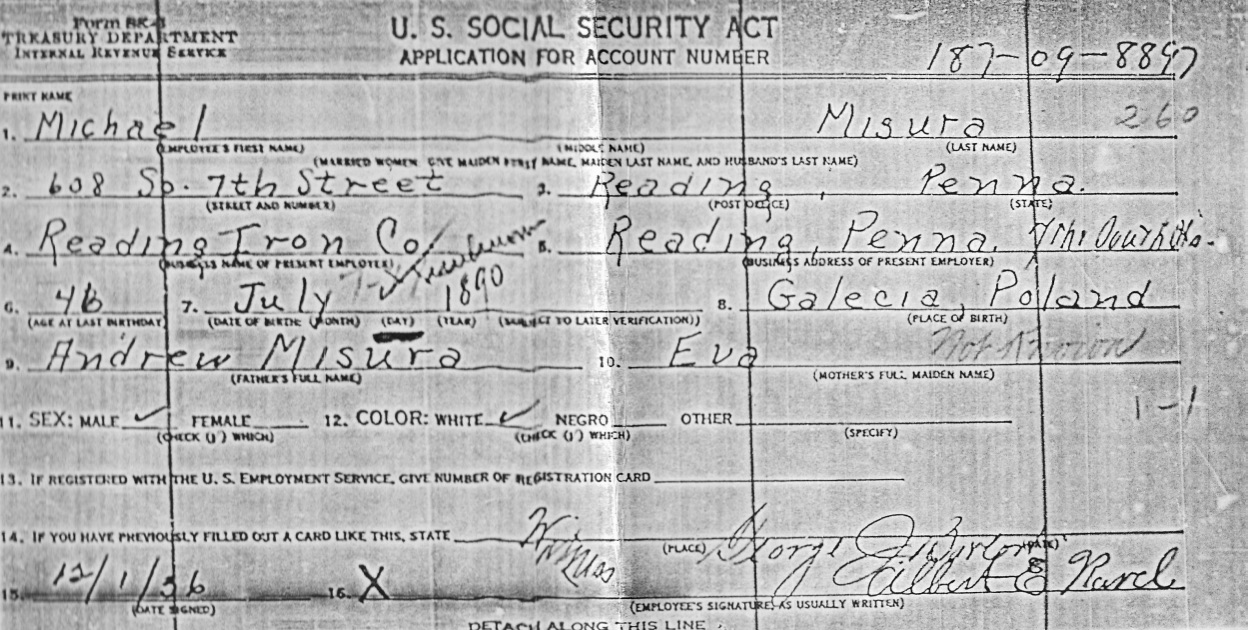 Form SS-5
TREASURY DEPARTMENT
INTERNAL REVENUE SERVICE
U. S. SOCIAL SECURITY ACT
APPLICATION FOR ACCOUNT NUMBER
187-09-8897
PRINT NAME
1. Michael Misura 260
(EMPLOYEE'S FIRST NAME) (MIDDLE NAME) (LAST NAME)
(MARRIED WOMEN GIVE MAIDEN FIRST NAME, MAIDEN LAST NAME, AND HUSBAND'S LAST NAME)
2. 608 So. 7th Street 3. Reading, Penna.
(STREET AND NUMBER) (POST OFFICE) (STATE)
4. Reading Iron Co. 5. Reading, Penna.
(BUSINESS NAME OF PRESENT EMPLOYER) (BUSINESS ADDRESS OF PRESENT EMPLOYER)
6. 46 7. July 1890 8. Galecia, Poland
(AGE AT LAST BIRTHDAY) (DATE OF BIRTH: (MONTH) (DAY) (YEAR) (SUBJECT TO LATER VERIFICATION)) (PLACE OF BIRTH)
9. Andrew Misura 10. Eva Not Known
(FATHER'S FULL NAME) (MOTHER'S FULL MAIDEN NAME)
11. SEX: MALE ✓ FEMALE 12. COLOR: WHITE ✓ NEGRO OTHER 1-1
(CHECK (√) WHICH) (CHECK (√) WHICH) (SPECIFY)
13. IF REGISTERED WITH THE U. S. EMPLOYMENT SERVICE, GIVE NUMBER OF REGISTRATION CARD
14. IF YOU HAVE PREVIOUSLY FILLED OUT A CARD LIKE THIS, STATE
(PLACE) (DATE)
Witness George
15. 12/1/36 16. X Gilbert
(DATE SIGNED) (EMPLOYEE'S SIGNATURE, AS USUALLY WRITTEN)
DETACH ALONG THIS LINE